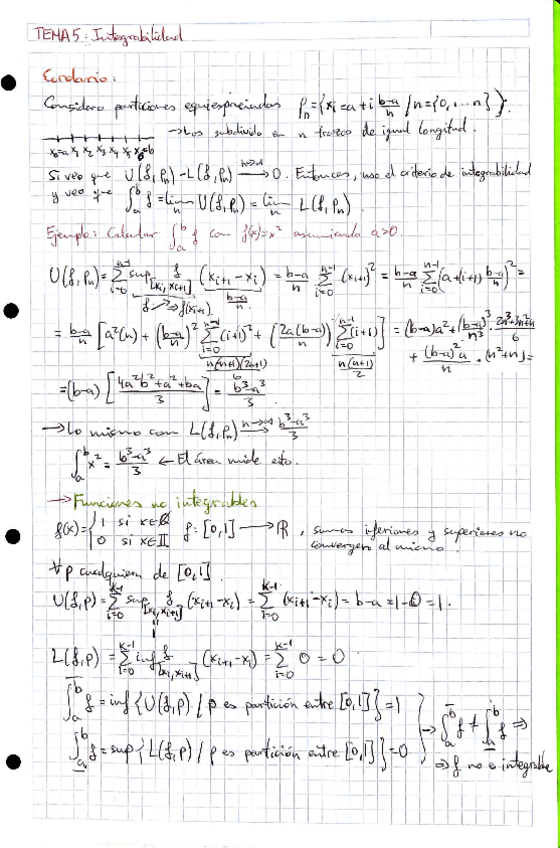 TEMA 5: Integrabilidad
Corolario:
Considero particiones equiespaciadas Pₙ = {xᵢ = a + i (b-a)/n / n = {0, ... n}}.
x₀=a x₁ x₂ x₃ x₄ x₅ x₆=b → Los subdivido en n trozos de igual longitud.
Si veo que U(f,Pₙ) - L(f,Pₙ) →(n→∞) 0. Entonces, uso el criterio de integrabilidad
y veo que ∫ₐᵇ f = limₙ U(f,Pₙ) = limₙ L(f,Pₙ).
Ejemplo: Calcular ∫ₐᵇ f con f(x)=x² asumiendo a>0
U(f,Pₙ) = Σᵢ₌₀ⁿ⁻¹ sup_[xᵢ,xᵢ₊₁] f (xᵢ₊₁ - xᵢ) = (b-a)/n Σᵢ₌₀ⁿ⁻¹ (xᵢ₊₁)² = (b-a)/n Σᵢ₌₀ⁿ⁻¹ (a+(i+1) (b-a)/n)² =
f ↗ → f(xᵢ₊₁) (b-a)/n
= (b-a)/n [a²(n) + ((b-a)/n)² Σᵢ₌₀ⁿ⁻¹ (i+1)² + (2a(b-a)/n) Σᵢ₌₀ⁿ⁻¹ (i+1)] = (b-a)a² + (b-a)³/n³ · (2n³+3n²+n)/6
n(n+1)(2n+1)/6 n(n+1)/2 + (b-a)²a/n · (n²+n) =
= (b-a) [(4a²b²+a²+ba)/3] = (b³-a³)/3
→ Lo mismo con L(f,Pₙ) →(n→∞) (b³-a³)/3
∫ₐᵇ x² = (b³-a³)/3 ← El área mide esto.
→ Funciones no integrables
f(x) = {1 si x∈ℚ f: [0,1] → ℝ, sumas inferiores y superiores no
0 si x∈𝕀 convergen al mismo.
∀P cualquiera de [0,1]
U(f,P) = Σᵢ₌₀ᵏ⁻¹ sup_[xᵢ,xᵢ₊₁] f (xᵢ₊₁ - xᵢ) = Σᵢ₌₀ᵏ⁻¹ (xᵢ₊₁ - xᵢ) = b-a = 1-0 = 1.
L(f,P) = Σᵢ₌₀ᵏ⁻¹ inf_[xᵢ,xᵢ₊₁] f (xᵢ₊₁ - xᵢ) = Σᵢ₌₀ᵏ⁻¹ 0 = 0
∫ₐᵇ̅ f = inf {U(f,P) / P es partición entre [0,1]} = 1
→ ∫ₐᵇ̅ f ≠ ∫ₐ̲ᵇ f ⇒
∫ₐ̲ᵇ f = sup {L(f,P) / P es partición entre [0,1]} = 0
⇒ f no e integrable